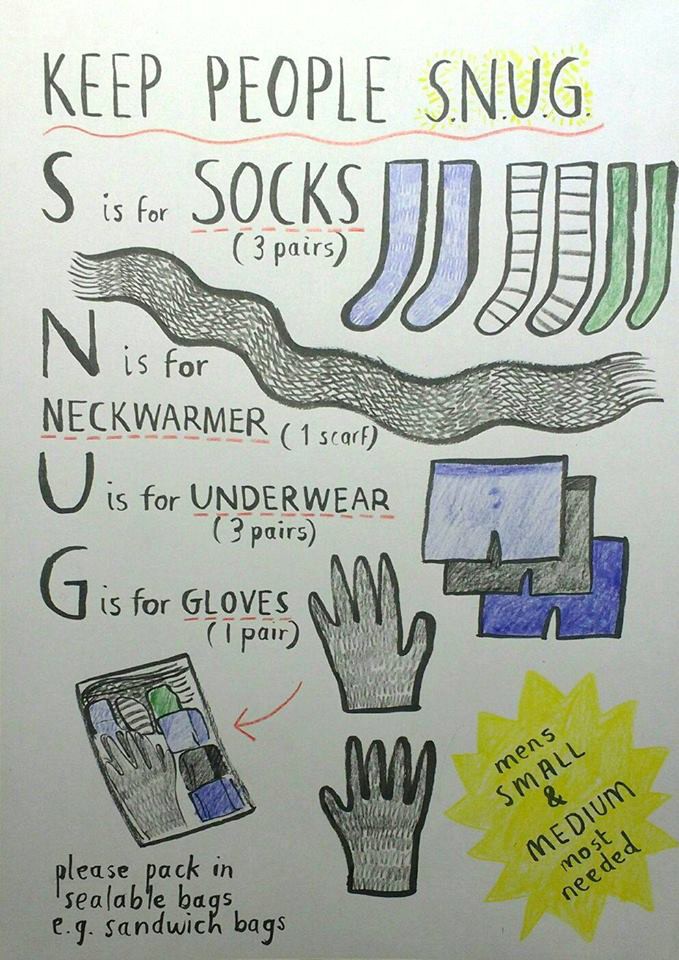 KEEP PEOPLE S.N.U.G.
S is for SOCKS
(3 pairs)
N is for
NECKWARMER (1 scarf)
U is for UNDERWEAR
(3 pairs)
G is for GLOVES
(1 pair)
please pack in
sealable bags
e.g. sandwich bags
mens
SMALL
&
MEDIUM
most
needed